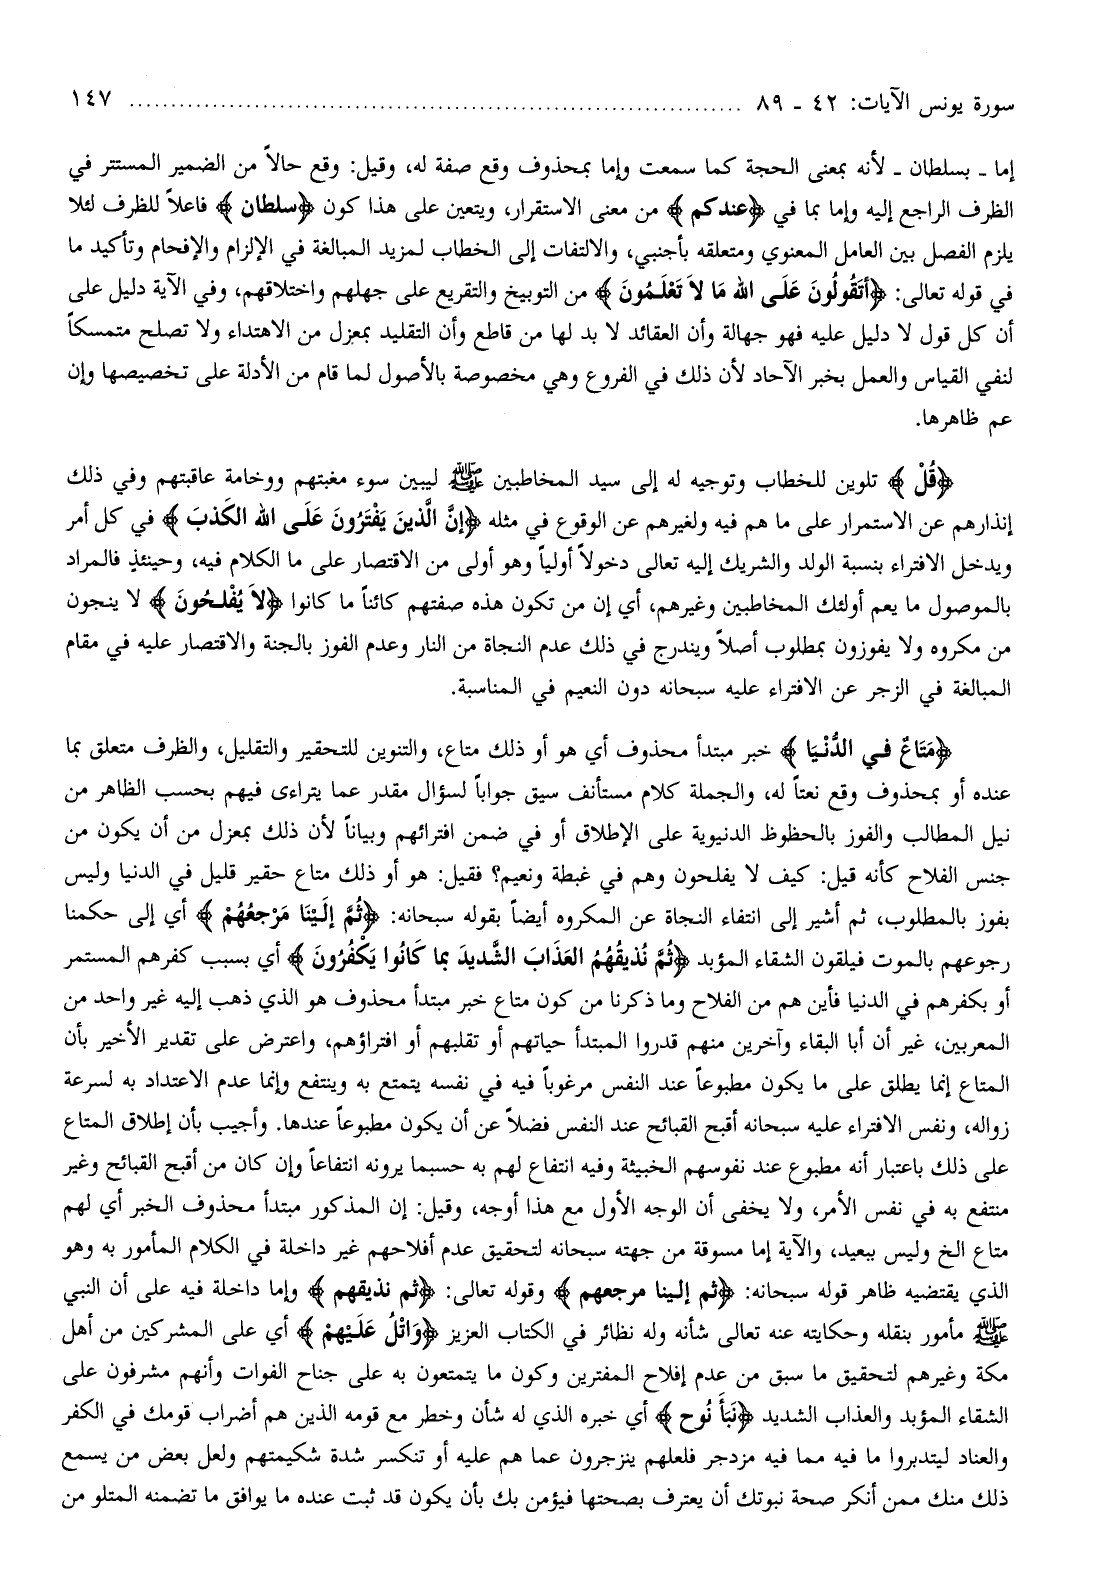 سورة يونس الآيات: ٤٢ ـ ٨٩ ........................................................................ ١٤٧
إما ـ بسلطان ـ لأنه بمعنى الحجة كما سمعت وإما بمحذوف وقع صفة له، وقيل: وقع حالاً من الضمير المستتر في
الظرف الراجع إليه وإما بما في ﴿عندكم﴾ من معنى الاستقرار، ويتعين على هذا كون ﴿سلطان﴾ فاعلاً للظرف لئلا
يلزم الفصل بين العامل المعنوي ومتعلقه بأجنبي، والالتفات إلى الخطاب لمزيد المبالغة في الإلزام والإفحام وتأكيد ما
في قوله تعالى: ﴿أَتَقُولُونَ عَلَى الله مَا لاَ تَعْلَمُونَ﴾ من التوبيخ والتقريع على جهلهم واختلاقهم، وفي الآية دليل على
أن كل قول لا دليل عليه فهو جهالة وأن العقائد لا بد لها من قاطع وأن التقليد بمعزل من الاهتداء ولا تصلح متمسكاً
لنفي القياس والعمل بخبر الآحاد لأن ذلك في الفروع وهي مخصوصة بالأصول لما قام من الأدلة على تخصيصها وإن
عم ظاهرها.
﴿قُلْ﴾ تلوين للخطاب وتوجيه له إلى سيد المخاطبين ﷺ ليبين سوء مغبتهم ووخامة عاقبتهم وفي ذلك
إنذارهم عن الاستمرار على ما هم فيه ولغيرهم عن الوقوع في مثله ﴿إنَّ الَّذينَ يَفْتَرُونَ عَلَى الله الكَذبَ﴾ في كل أمر
ويدخل الافتراء بنسبة الولد والشريك إليه تعالى دخولاً أولياً وهو أولى من الاقتصار على ما الكلام فيه، وحينئذٍ فالمراد
بالموصول ما يعم أولئك المخاطبين وغيرهم، أي إن من تكون هذه صفتهم كائناً ما كانوا ﴿لاَ يُفْلحُونَ﴾ لا ينجون
من مكروه ولا يفوزون بمطلوب أصلاً ويندرج في ذلك عدم النجاة من النار وعدم الفوز بالجنة والاقتصار عليه في مقام
المبالغة في الزجر عن الافتراء عليه سبحانه دون النعيم في المناسبة.
﴿مَتَاعٌ في الدُّنْيَا﴾ خبر مبتدأ محذوف أي هو أو ذلك متاع، والتنوين للتحقير والتقليل، والظرف متعلق بما
عنده أو بمحذوف وقع نعتاً له، والجملة كلام مستأنف سيق جواباً لسؤال مقدر عما يتراءى فيهم بحسب الظاهر من
نيل المطالب والفوز بالحظوظ الدنيوية على الإطلاق أو في ضمن افترائهم وبياناً لأن ذلك بمعزل من أن يكون من
جنس الفلاح كأنه قيل: كيف لا يفلحون وهم في غبطة ونعيم؟ فقيل: هو أو ذلك متاع حقير قليل في الدنيا وليس
بفوز بالمطلوب، ثم أشير إلى انتفاء النجاة عن المكروه أيضاً بقوله سبحانه: ﴿ثُمَّ إلَيْنَا مَرْجعُهُمْ﴾ أي إلى حكمنا
رجوعهم بالموت فيلقون الشقاء المؤبد ﴿ثُمَّ نُذيقُهُمُ العَذَابَ الشَّديدَ بما كَانُوا يَكْفُرُونَ﴾ أي بسبب كفرهم المستمر
أو بكفرهم في الدنيا فأين هم من الفلاح وما ذكرنا من كون متاع خبر مبتدأ محذوف هو الذي ذهب إليه غير واحد من
المعربين، غير أن أبا البقاء وآخرين منهم قدروا المبتدأ حياتهم أو تقلبهم أو افتراؤهم، واعترض على تقدير الأخير بأن
المتاع إنما يطلق على ما يكون مطبوعاً عند النفس مرغوباً فيه في نفسه يتمتع به وينتفع وإنما عدم الاعتداد به لسرعة
زواله، ونفس الافتراء عليه سبحانه أقبح القبائح عند النفس فضلاً عن أن يكون مطبوعاً عندها. وأجيب بأن إطلاق المتاع
على ذلك باعتبار أنه مطبوع عند نفوسهم الخبيثة وفيه انتفاع لهم به حسبما يرونه انتفاعاً وإن كان من أقبح القبائح وغير
منتفع به في نفس الأمر، ولا يخفى أن الوجه الأول مع هذا أوجه، وقيل: إن المذكور مبتدأ محذوف الخبر أي لهم
متاع الخ وليس ببعيد، والآية إما مسوقة من جهته سبحانه لتحقيق عدم أفلاحهم غير داخلة في الكلام المأمور به وهو
الذي يقتضيه ظاهر قوله سبحانه: ﴿ثم إلينا مرجعهم﴾ وقوله تعالى: ﴿ثم نذيقهم﴾ وإما داخلة فيه على أن النبي
ﷺ مأمور بنقله وحكايته عنه تعالى شأنه وله نظائر في الكتاب العزيز ﴿وَاتْلُ عَلَيْهمْ﴾ أي على المشركين من أهل
مكة وغيرهم لتحقيق ما سبق من عدم إفلاح المفترين وكون ما يتمتعون به على جناح الفوات وأنهم مشرفون على
الشقاء المؤبد والعذاب الشديد ﴿نَبَأَ نُوح﴾ أي خبره الذي له شأن وخطر مع قومه الذين هم أضراب قومك في الكفر
والعناد ليتدبروا ما فيه مما فيه مزدجر فلعلهم ينزجرون عما هم عليه أو تنكسر شدة شكيمتهم ولعل بعض من يسمع
ذلك منك ممن أنكر صحة نبوتك أن يعترف بصحتها فيؤمن بك بأن يكون قد ثبت عنده ما يوافق ما تضمنه المتلو من